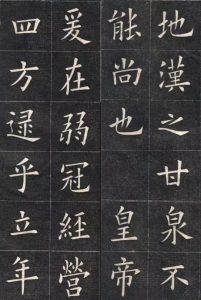 地漢之甘泉不
能尚也皇帝
爰在弱冠經營
四方逮乎立年